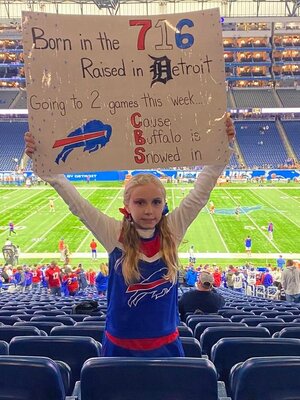 Born in the 716
Raised in Detroit
Going to 2 games this week...
Cause
Buffalo is
Snowed in